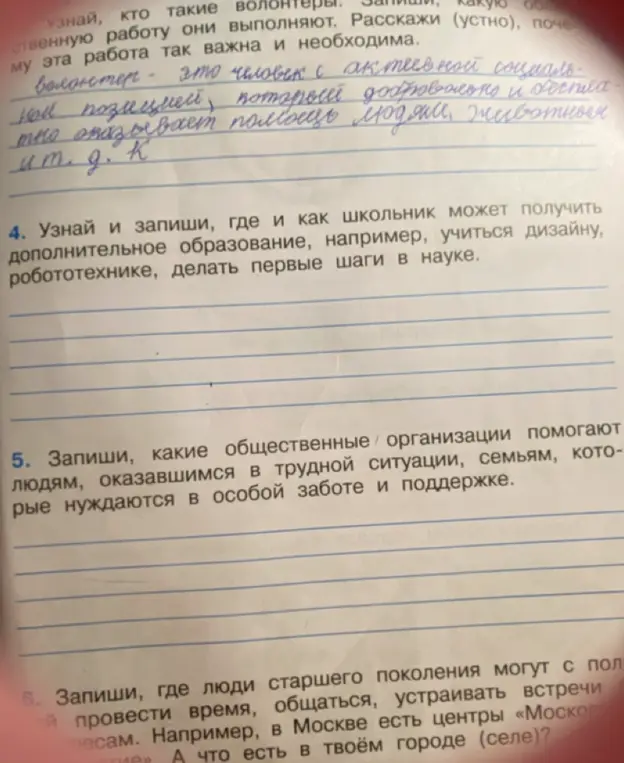 знай, кто такие волонтёры. Запиши, какую
ственную работу они выполняют. Расскажи (устно), поче
му эта работа так важна и необходима.
волонтер - это человек с активной социаль-
ной позицией, который добровольно и беспла-
тно оказывает помощь людям, животным
и т. д. К
4. Узнай и запиши, где и как школьник может получить
дополнительное образование, например, учиться дизайну,
робототехнике, делать первые шаги в науке.
5. Запиши, какие общественные организации помогают
людям, оказавшимся в трудной ситуации, семьям, кото-
рые нуждаются в особой заботе и поддержке.
6. Запиши, где люди старшего поколения могут с пол
й провести время, общаться, устраивать встречи
есам. Например, в Москве есть центры «Моско
ие». А что есть в твоём городе (селе)?